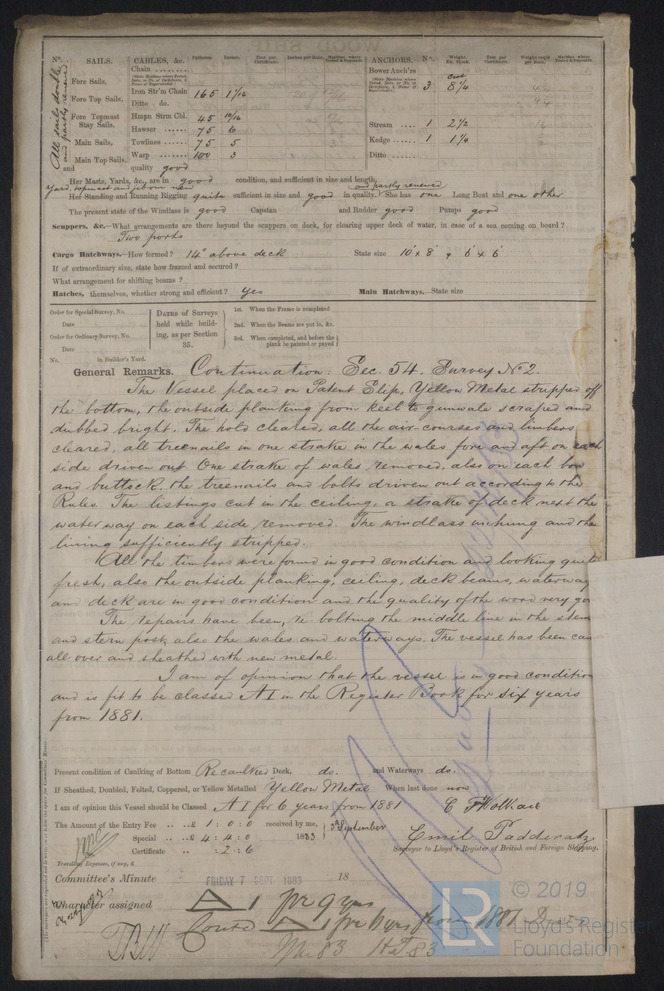 WOOD SHIP.
Nº. SAILS. CABLES, &c. Fathoms. Inches. Test per Certificate. Inches per Rule. ANCHORS. Nº. Weight Ex. Stock Test per Certificate. Weight req'd per Rule.
All sails double and partly renewed
Chain
Bower Anch'rs cwt
Fore Sails, Iron Str'm Chain 165 1 1/16 3 8 1/4
Fore Top Sails, Ditto do.
Fore Topmast Stay Sails, Hmpn Strm Cbl. 45 Stream 1 2 1/2
Hawser 75 6 Kedge 1 1 1/4
Main Sails, Towlines 75 5 Ditto
Main Top Sails, Warp 100 3
and quality good
Her Masts, Yards, &c., are in good condition, and sufficient in size and length.
Yard, topmast and jibboom new and partly renewed
Her Standing and Running Rigging quite sufficient in size and good in quality. She has one Long Boat and one other
The present state of the Windlass is good Capstan and Rudder good Pumps good
Scuppers, &c.—What arrangements are there beyond the scuppers on deck, for clearing upper deck of water, in case of a sea coming on board?
Two ports
Cargo Hatchways.—How formed? 14" above deck State size 10' x 8' & 6' x 6'
If of extraordinary size, state how framed and secured?
What arrangement for shifting beams?
Hatches, themselves, whether strong and efficient? Yes Main Hatchways.—State size
Order for Special Survey, No.
Date
Order for Ordinary Survey, No.
Date
No. in Builder's Yard.
DATES of Surveys held while building, as per Section 35.
1st. When the Frame is completed
2nd. When the Beams are put in, &c.
3rd. When completed, and before the plank be painted or payed
General Remarks. Continuation: Sec. 54. Survey Nº 2.
The Vessel placed on Patent Slip, Yellow Metal stripped off
the bottom, the outside planking from keel to gunwale scraped and
dubbed bright. The hold cleared, all the air-courses and limbers
cleared, all treenails in one strake in the wales fore and aft on each
side driven out. One strake of wales removed, also on each bow
and buttock, the treenails and bolts driven out according to the
Rules. The listings cut in the ceiling, a strake of deck next the
waterway on each side removed. The windlass unhung and the
lining sufficiently stripped.
All the timbers were found in good condition and looking quite
fresh, also the outside planking, ceiling, deck beams, waterway
and deck are in good condition and the quality of the wood very go
The repairs have been, re bolting the middle line in the stem
and stern post, also the wales and waterways. The vessel has been cau
all over and sheathed with new metal.
I am of opinion that the vessel is in good condition
and is fit to be classed A1 in the Register Book for six years
from 1881.
Present condition of Caulking of Bottom Recaulked Deck, do. and Waterways do.
If Sheathed, Doubled, Felted, Coppered, or Yellow Metalled Yellow Metal When last done now
I am of opinion this Vessel should be Classed A1 for 6 years from 1881
The Amount of the Entry Fee £ 1 : 0 : 0 received by me,
Special £ 4 : 4 : 0 September 1883
Certificate : 2 : 6
Surveyor to Lloyd's Register of British and Foreign Shipping.
Travelling Expenses, if any, £
Committee's Minute FRIDAY 7 SEPT 1883 18
Character assigned A 1 for 9 yrs
Contd A 1 for 6 yrs from 1881
© 2019
LR
Lloyd's Register
Foundation